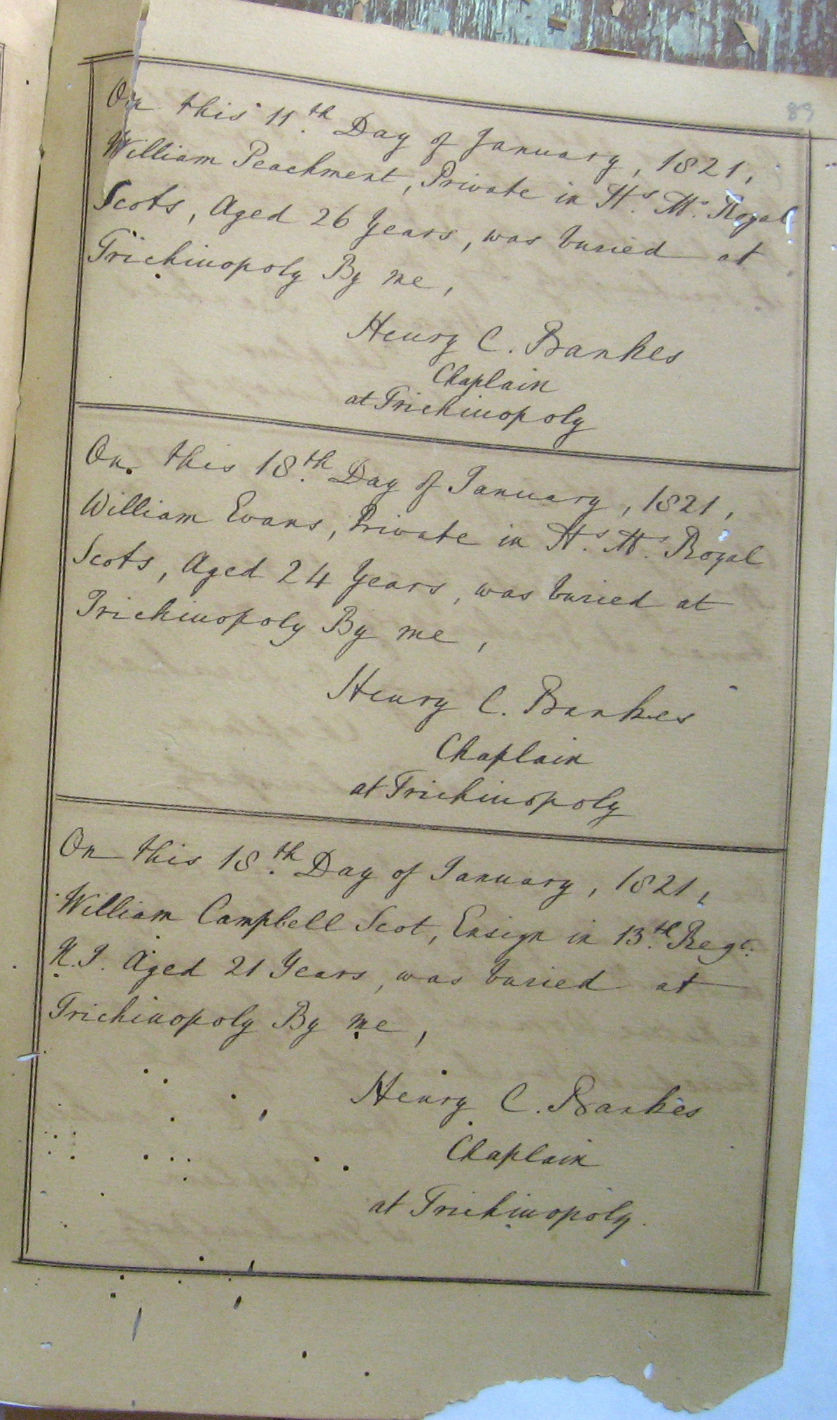 89
On this 11.th Day of January, 1821,
William Peachment, Private in H.s M.s Royal
Scots, Aged 26 Years, was buried at
Trichinopoly By me,
Henry C. Bankes
Chaplain
at Trichinopoly
On this 18.th Day of January, 1821,
William Evans, Private in H.s M.s Royal
Scots, Aged 24 Years, was buried at
Trichinopoly By me,
Henry C. Bankes
Chaplain
at Trichinopoly
On this 18.th Day of January, 1821,
William Campbell Scot, Ensign in 13.th Reg.t
N.I. Aged 21 Years, was buried at
Trichinopoly By me,
Henry C. Bankes
Chaplain
at Trichinopoly.